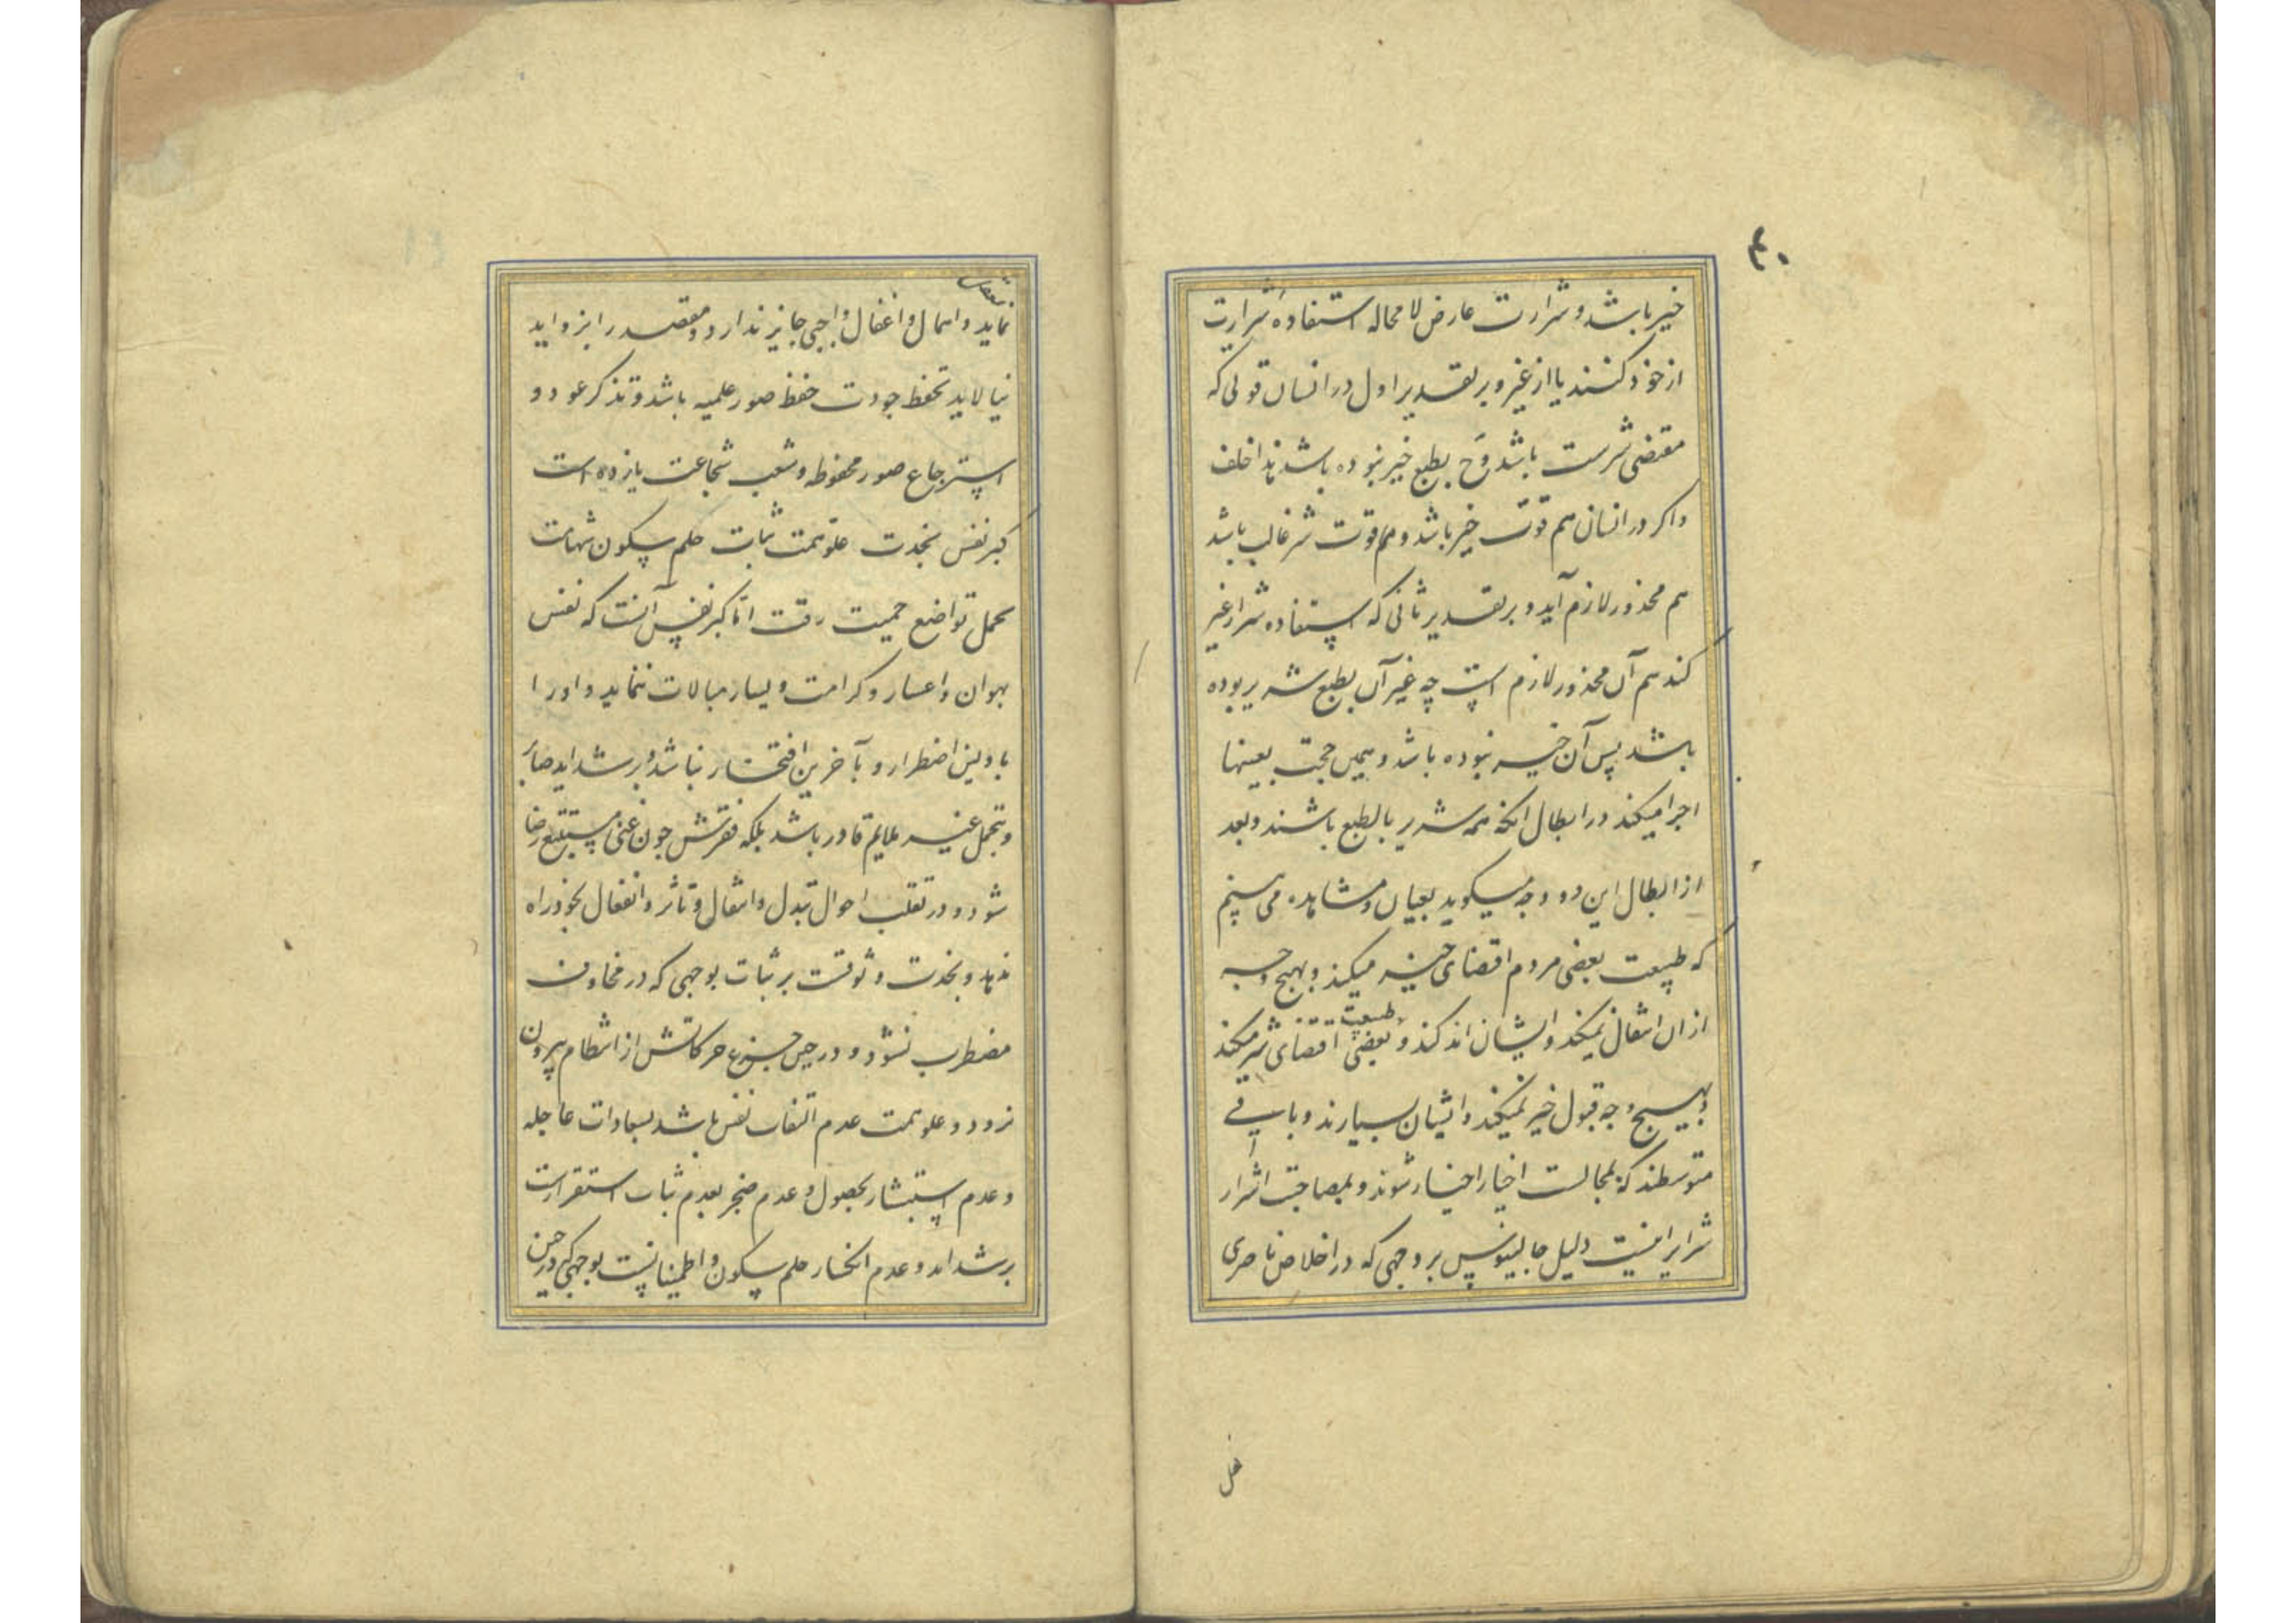 ۴۰
خیر باشد و شرارت عارض لا محاله استفاده شرارت
از خود کنند یا از غیر و بر تقدیر اول در انسان قوتی که
مقتضی شرست باشد وح بطبع خیر نبوده باشد هذا خلف
و اگر در انسان هم قوت خیر باشد و هم قوت شر غالب باشد
هم محذور لازم آید و بر تقدیر ثانی که استفاده شر از غیر
کند هم آن محذور لازم است چه غیر آن بطبع شریر بوده
باشد پس آن خیر نبوده باشد و همین حجت بعینها
اجرا میکند در ابطال انکه همه شریر بالطبع باشند و بعد
از ابطال این دو وجه میگوید بعیان و مشاهده می بینم
که طبیعت بعضی مردم اقتضای خیر میکند و بهیچ وجه
از ان انتقال نمیکند و ایشان اندکند و طبیعت بعضی اقتضای شر میکند
و بهیچ وجه قبول خیر نمیکند و ایشان بسیارند و باقی
متوسطند که بمجالست اخیار اخیار شوند و بمصاحبت اشرار
شرایر اینست دلیل جالینوس بر وجهی که در اخلاص ناصری
نماید و اهمال و اغفال واجبی جایز ندارد و مقصد را بزواید
نیالاید تحفظ جودت حفظ صور علمیه باشد و تذکر عود و
استرجاع صور محفوظه و شعب شجاعت یازده است
کبر نفس نجدت علو همت ثبات حلم سکون شهامت
تحمل تواضع حمیت رقت اما کبر نفس آنست که نفس
بهوان و اعسار و کرامت و یسار مبالات ننماید و او را
باولین اضطرار و بآخرین افتخار نباشد و بر شداید صابر
و بتحمل غیر ملایم قادر باشد بلکه فقرش چون غنی مستتبع رضا
شود و در تقلب احوال تبدل و انتقال و تاثر و انفعال بخود راه
ندهد و نجدت وثوقست بر ثبات بوجهی که در مخاوف
مضطرب نشود و در حین جزع حرکاتش از انتظام بیرون
نرود و علو همت عدم التفات نفس باشد بسعادات عاجله
و عدم استبشار بحصول و عدم ضجر بعدم ثبات استقرارست
بر شداید و عدم انکسار حلم سکون و اطمینانیست بوجهی که در حین